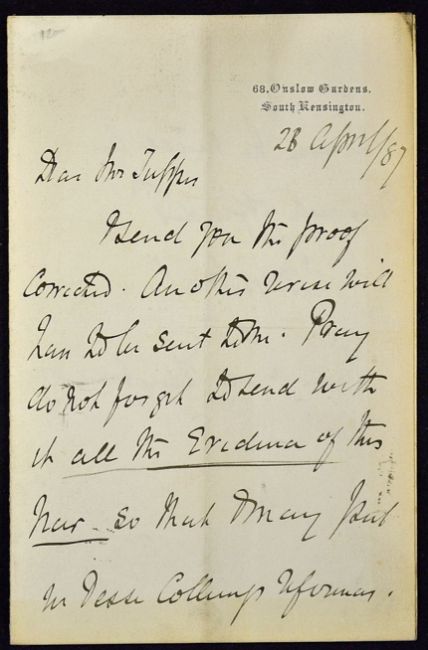 68, Onslow Gardens,
South Kensington.
28 April/87
Dear Mr Tupper
I send you the proof
corrected. Another revise will
have to be sent to me. Pray
do not forget to send with
it all the Evidence of this
Year so that I may put
in Jesse Collings